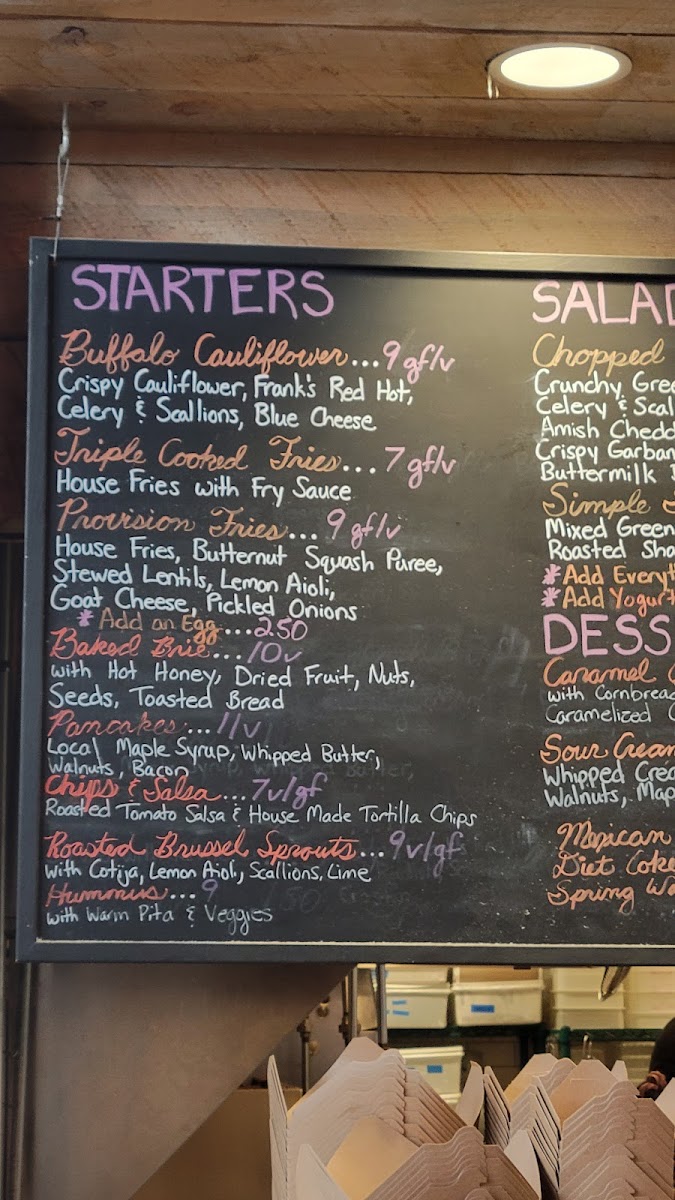 STARTERS
Buffalo Cauliflower...9 gf/v
Crispy Cauliflower, Frank's Red Hot,
Celery & Scallions, Blue Cheese
Triple Cooked Fries...7 gf/v
House Fries with Fry Sauce
Provision Fries...9 gf/v
House Fries, Butternut Squash Puree,
Stewed Lentils, Lemon Aioli,
Goat Cheese, Pickled Onions
* Add an Egg....2.50
Baked Brie...10v
with Hot Honey, Dried Fruit, Nuts,
Seeds, Toasted Bread
Pancakes...11v
Local Maple Syrup, Whipped Butter,
Walnuts, Bacon
Chips & Salsa...7v/gf
Roasted Tomato Salsa & House Made Tortilla Chips
Roasted Brussel Sprouts...9v/gf
with Cotija, Lemon Aioli, Scallions, Lime
Hummus...9
with Warm Pita & Veggies
SALAD
Chopped
Crunchy Gree
Celery & Scal
Amish Chedd
Crispy Garban
Buttermilk
Simple
Mixed Green
Roasted Sha
* Add Everyt
* Add Yogurt
DESS
Caramel
with Cornbread
Caramelized
Sour Cream
Whipped Crea
Walnuts, Map
Mexican
Diet Coke
Spring Wa